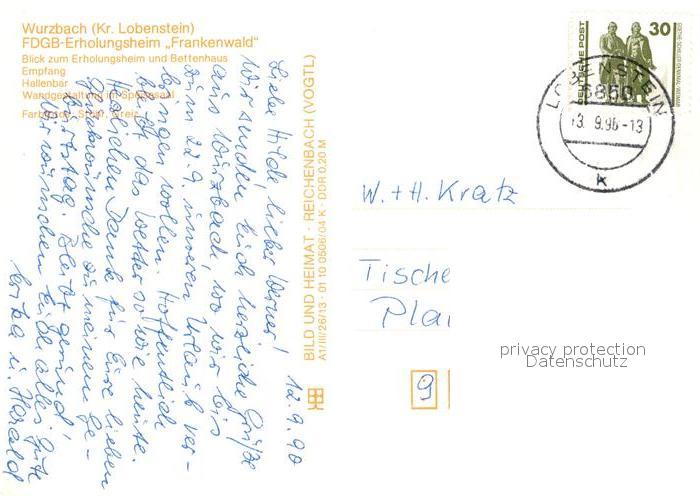 Wurzbach (Kr. Lobenstein)
FDGB-Erholungsheim „Frankenwald“
Blick zum Erholungsheim und Bettenhaus
Empfang
Hallenbar
Wandgestaltung im Speisesaal
Farbfotos: Straff, Greiz
12.9.90
Liebe Hilde, lieber Werner!
Wir senden Euch herzliche Grüße
aus Wurzbach, wo wir bis
zum 22.9. unseren Urlaub ver-
bringen wollen. Hoffentlich
bleibt das Wetter so wie heute.
Herzlichen Dank für Eure lieben
Glückwünsche zu meinem Ge-
burtstag. Bleibt gesund!
Wir wünschen Euch alles Gute
Erika u. Harald
BILD UND HEIMAT · REICHENBACH (VOGTL)
A1/III/26/13 · 01 10 0506/04 K · DDR 0,20 M
DEUTSCHE POST
30
GOETHE-SCHILLER-DENKMAL, WEIMAR
LOBENSTEIN
6850
13. 9.90-13
k
W. + H. Kratz
Tische
Pla
9
privacy protection
Datenschutz